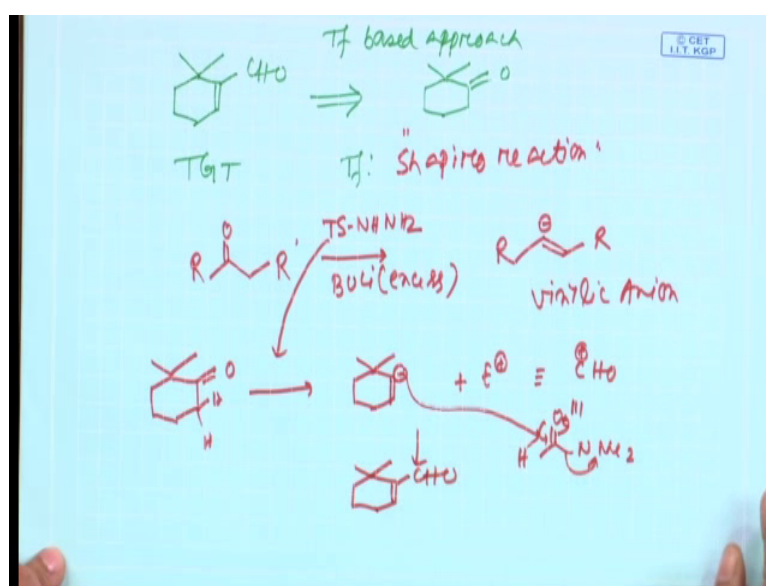 Tf based approach
© CET
I.I.T. KGP
CHO
O
TGT
Tf: "Shapiro reaction"
O
TS-NHNH2
R R'
BuLi (excess)
⊖
R R
Vinylic Anion
O
H
H
⊖
+ E⊕ ≡ ⊕CHO
H
NMe2
CHO